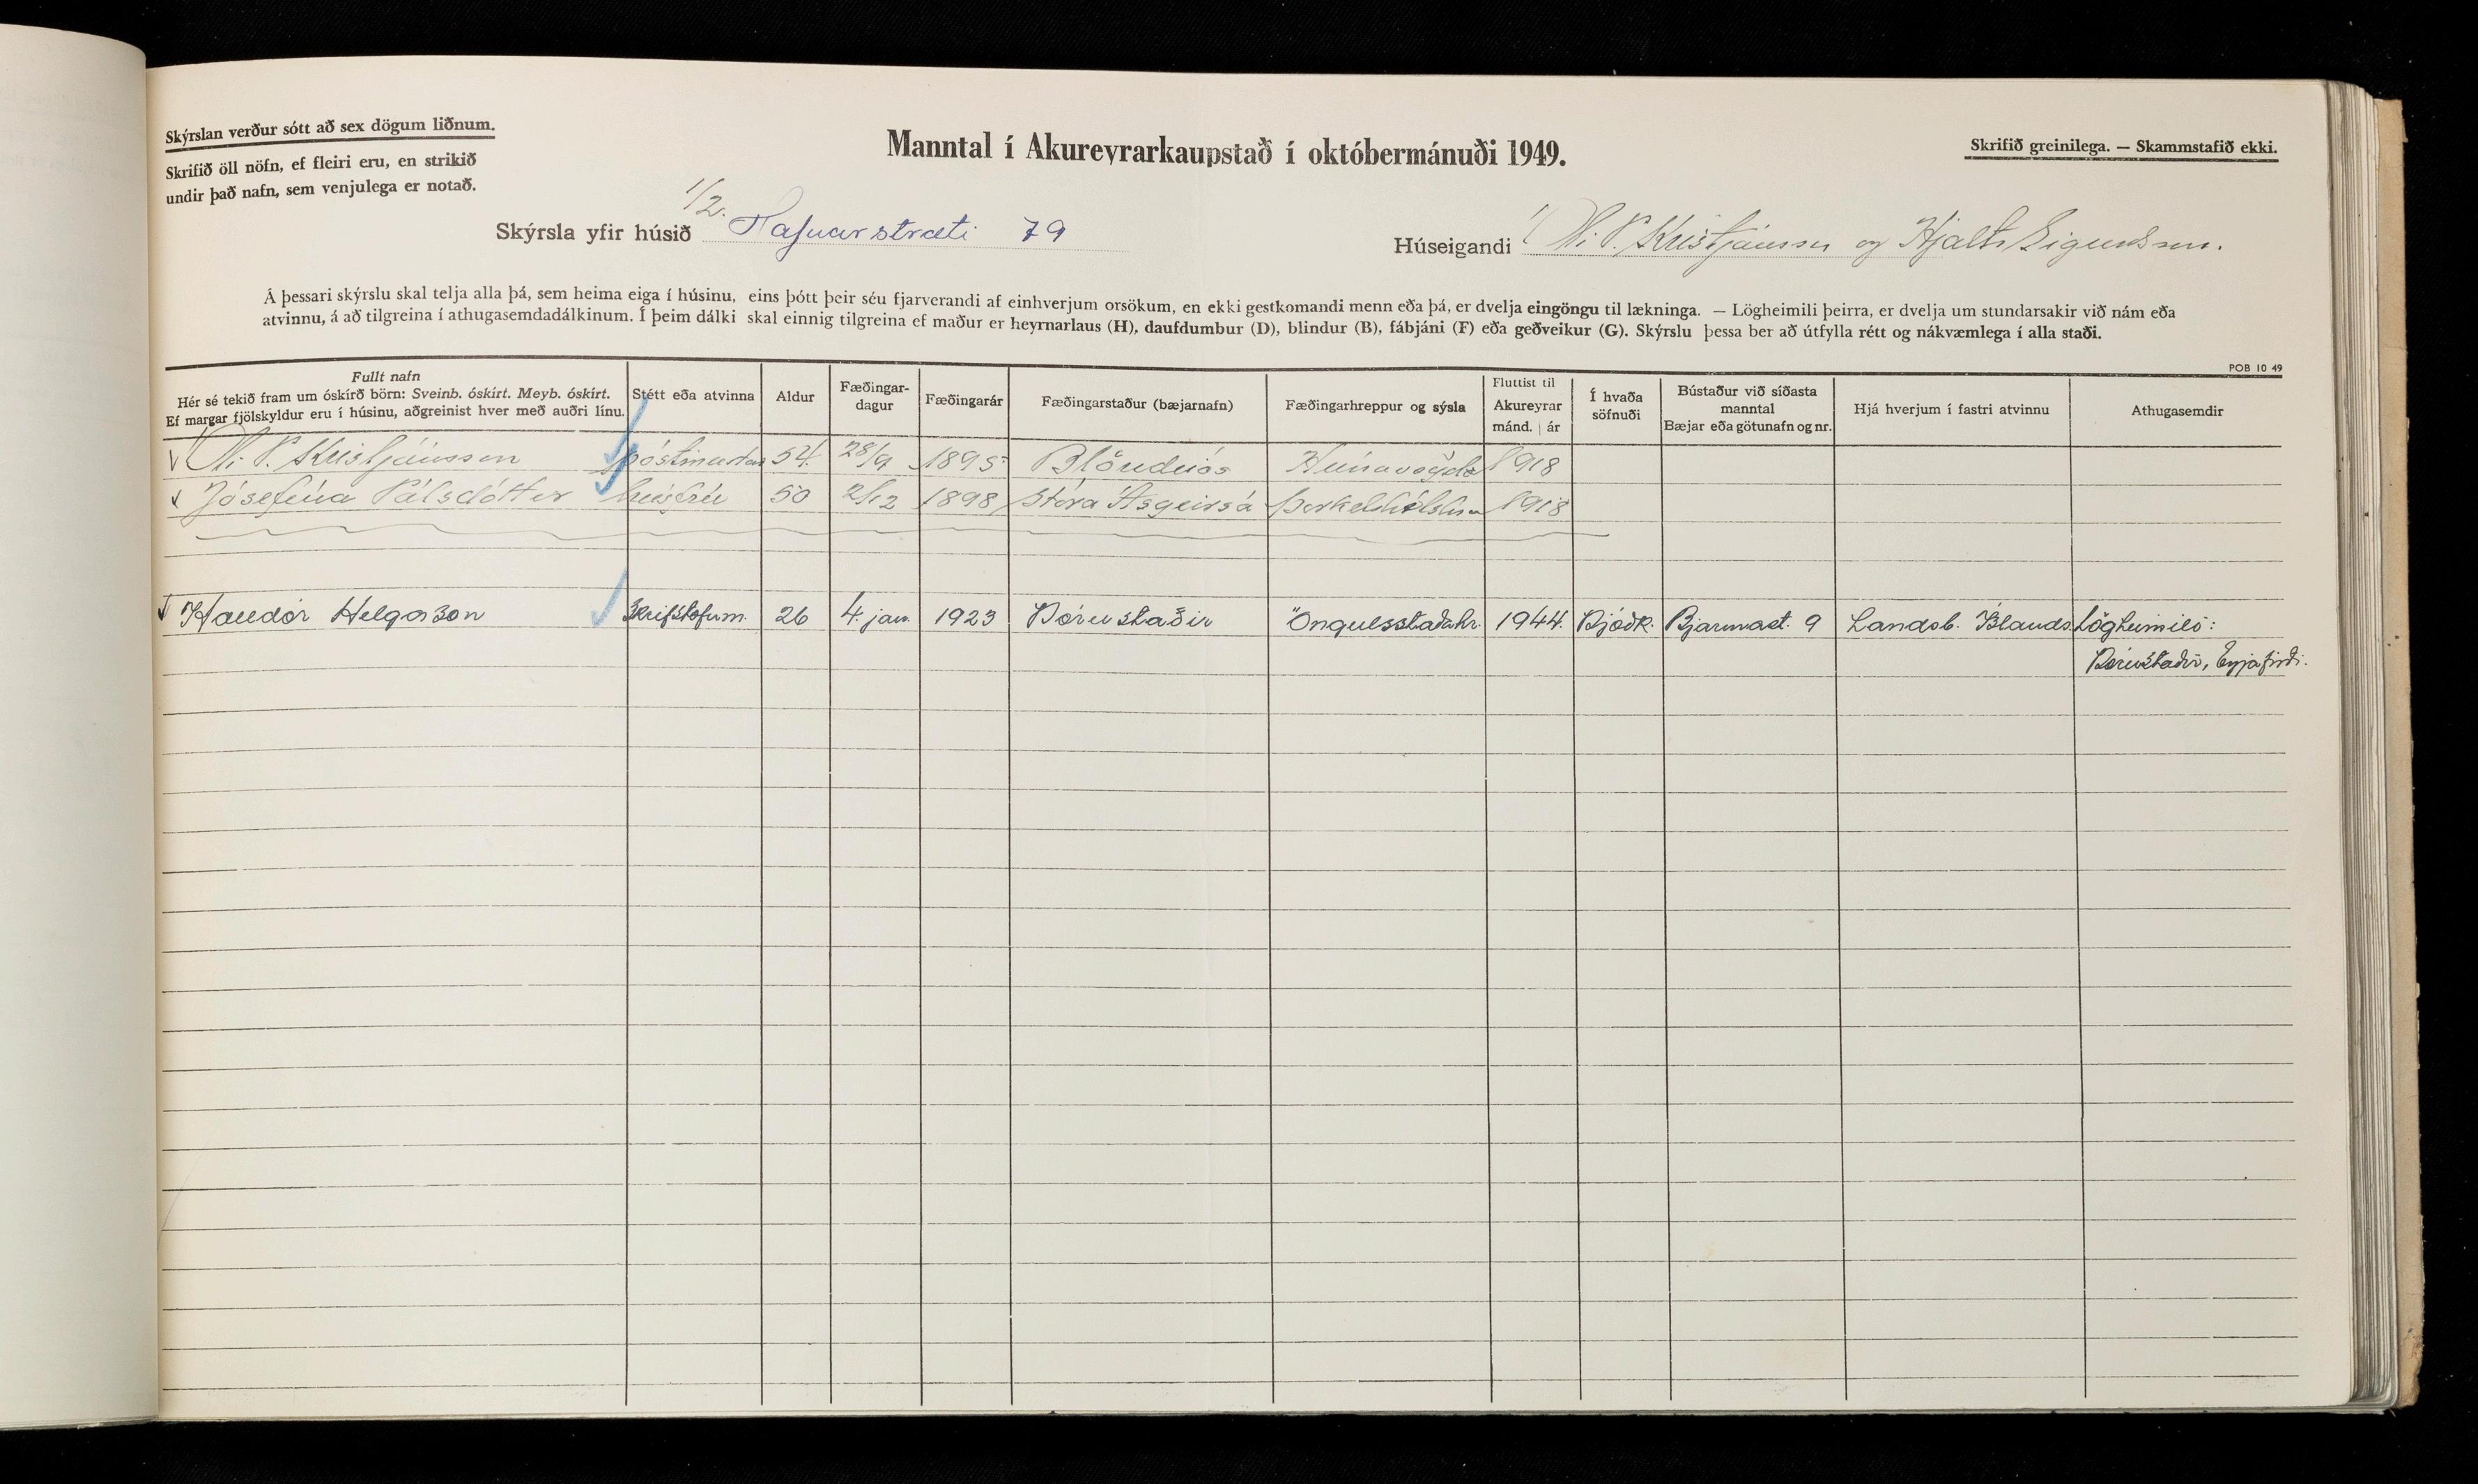 Skýrslan verður sótt að sex dögum liðnum.
Skrifið öll nöfn, ef fleiri eru, en strikið
undir það nafn, sem venjulega er notað.
Manntal í Akureyrarkaupstað í októbermánuði 1949.
Skrifið greinilega. — Skammstafið ekki.
1/2.
Skýrsla yfir húsið Hafnarstræti 79
Húseigandi P. Kristjánsson og Hjalti Sigurdsson.
Á þessari skýrslu skal telja alla þá, sem heima eiga í húsinu, eins þótt þeir séu fjarverandi af einhverjum orsökum, en ekki gestkomandi menn eða þá, er dvelja eingöngu til lækninga. — Lögheimili þeirra, er dvelja um stundarsakir við nám eða
atvinnu, á að tilgreina í athugasemdadálkinum. Í þeim dálki skal einnig tilgreina ef maður er heyrnarlaus (H), daufdumbur (D), blindur (B), fábjáni (F) eða geðveikur (G). Skýrslu þessa ber að útfylla rétt og nákvæmlega í alla staði.
POB 10 49
Fullt nafn
Hér sé tekið fram um óskírð börn: Sveinb. óskírt. Meyb. óskírt.
Ef margar fjölskyldur eru í húsinu, aðgreinist hver með auðri línu.
Stétt eða atvinna
Aldur
Fæðingar-
dagur
Fæðingarár
Fæðingarstaður (bæjarnafn)
Fæðingarhreppur og sýsla
Fluttist til
Akureyrar
mánd. | ár
Í hvaða
söfnuði
Bústaður við síðasta
manntal
Bæjar eða götunafn og nr.
Hjá hverjum í fastri atvinnu
Athugasemdir
P. Kristjánsson 54. 28/9 1895 Blönduós 1918
Jósefína Pálsdóttir húsfrú 50 2/12 1898 Stóra Ásgeirsá 1918
Halldór Helgason Skrifstofum. 26 4. jan. 1923 Þórustaðir Öngulsstaðahr. 1944. Þjóðk. Bjarmast. 9 Landsb. Íslands Lögheimili:
Þórustaðir, Eyjafirði.